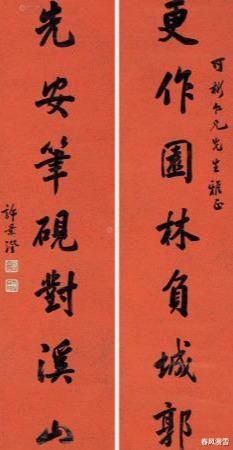 可彬仁兄先生雅正
更作園林負城郭
先安筆硯對溪山
許景澄
春风滑雪